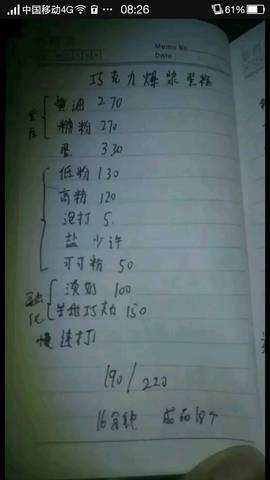 中国移动4G 08:26 61%
Memo No.
Date
巧克力爆浆蛋糕
黄油 270
糖粉 270
蛋 330
低粉 130
高粉 120
泡打 5
盐 少许
可可粉 50
淡奶 100
融化 苦甜巧克力 150
慢速打
190/220
16分钟 成品18个